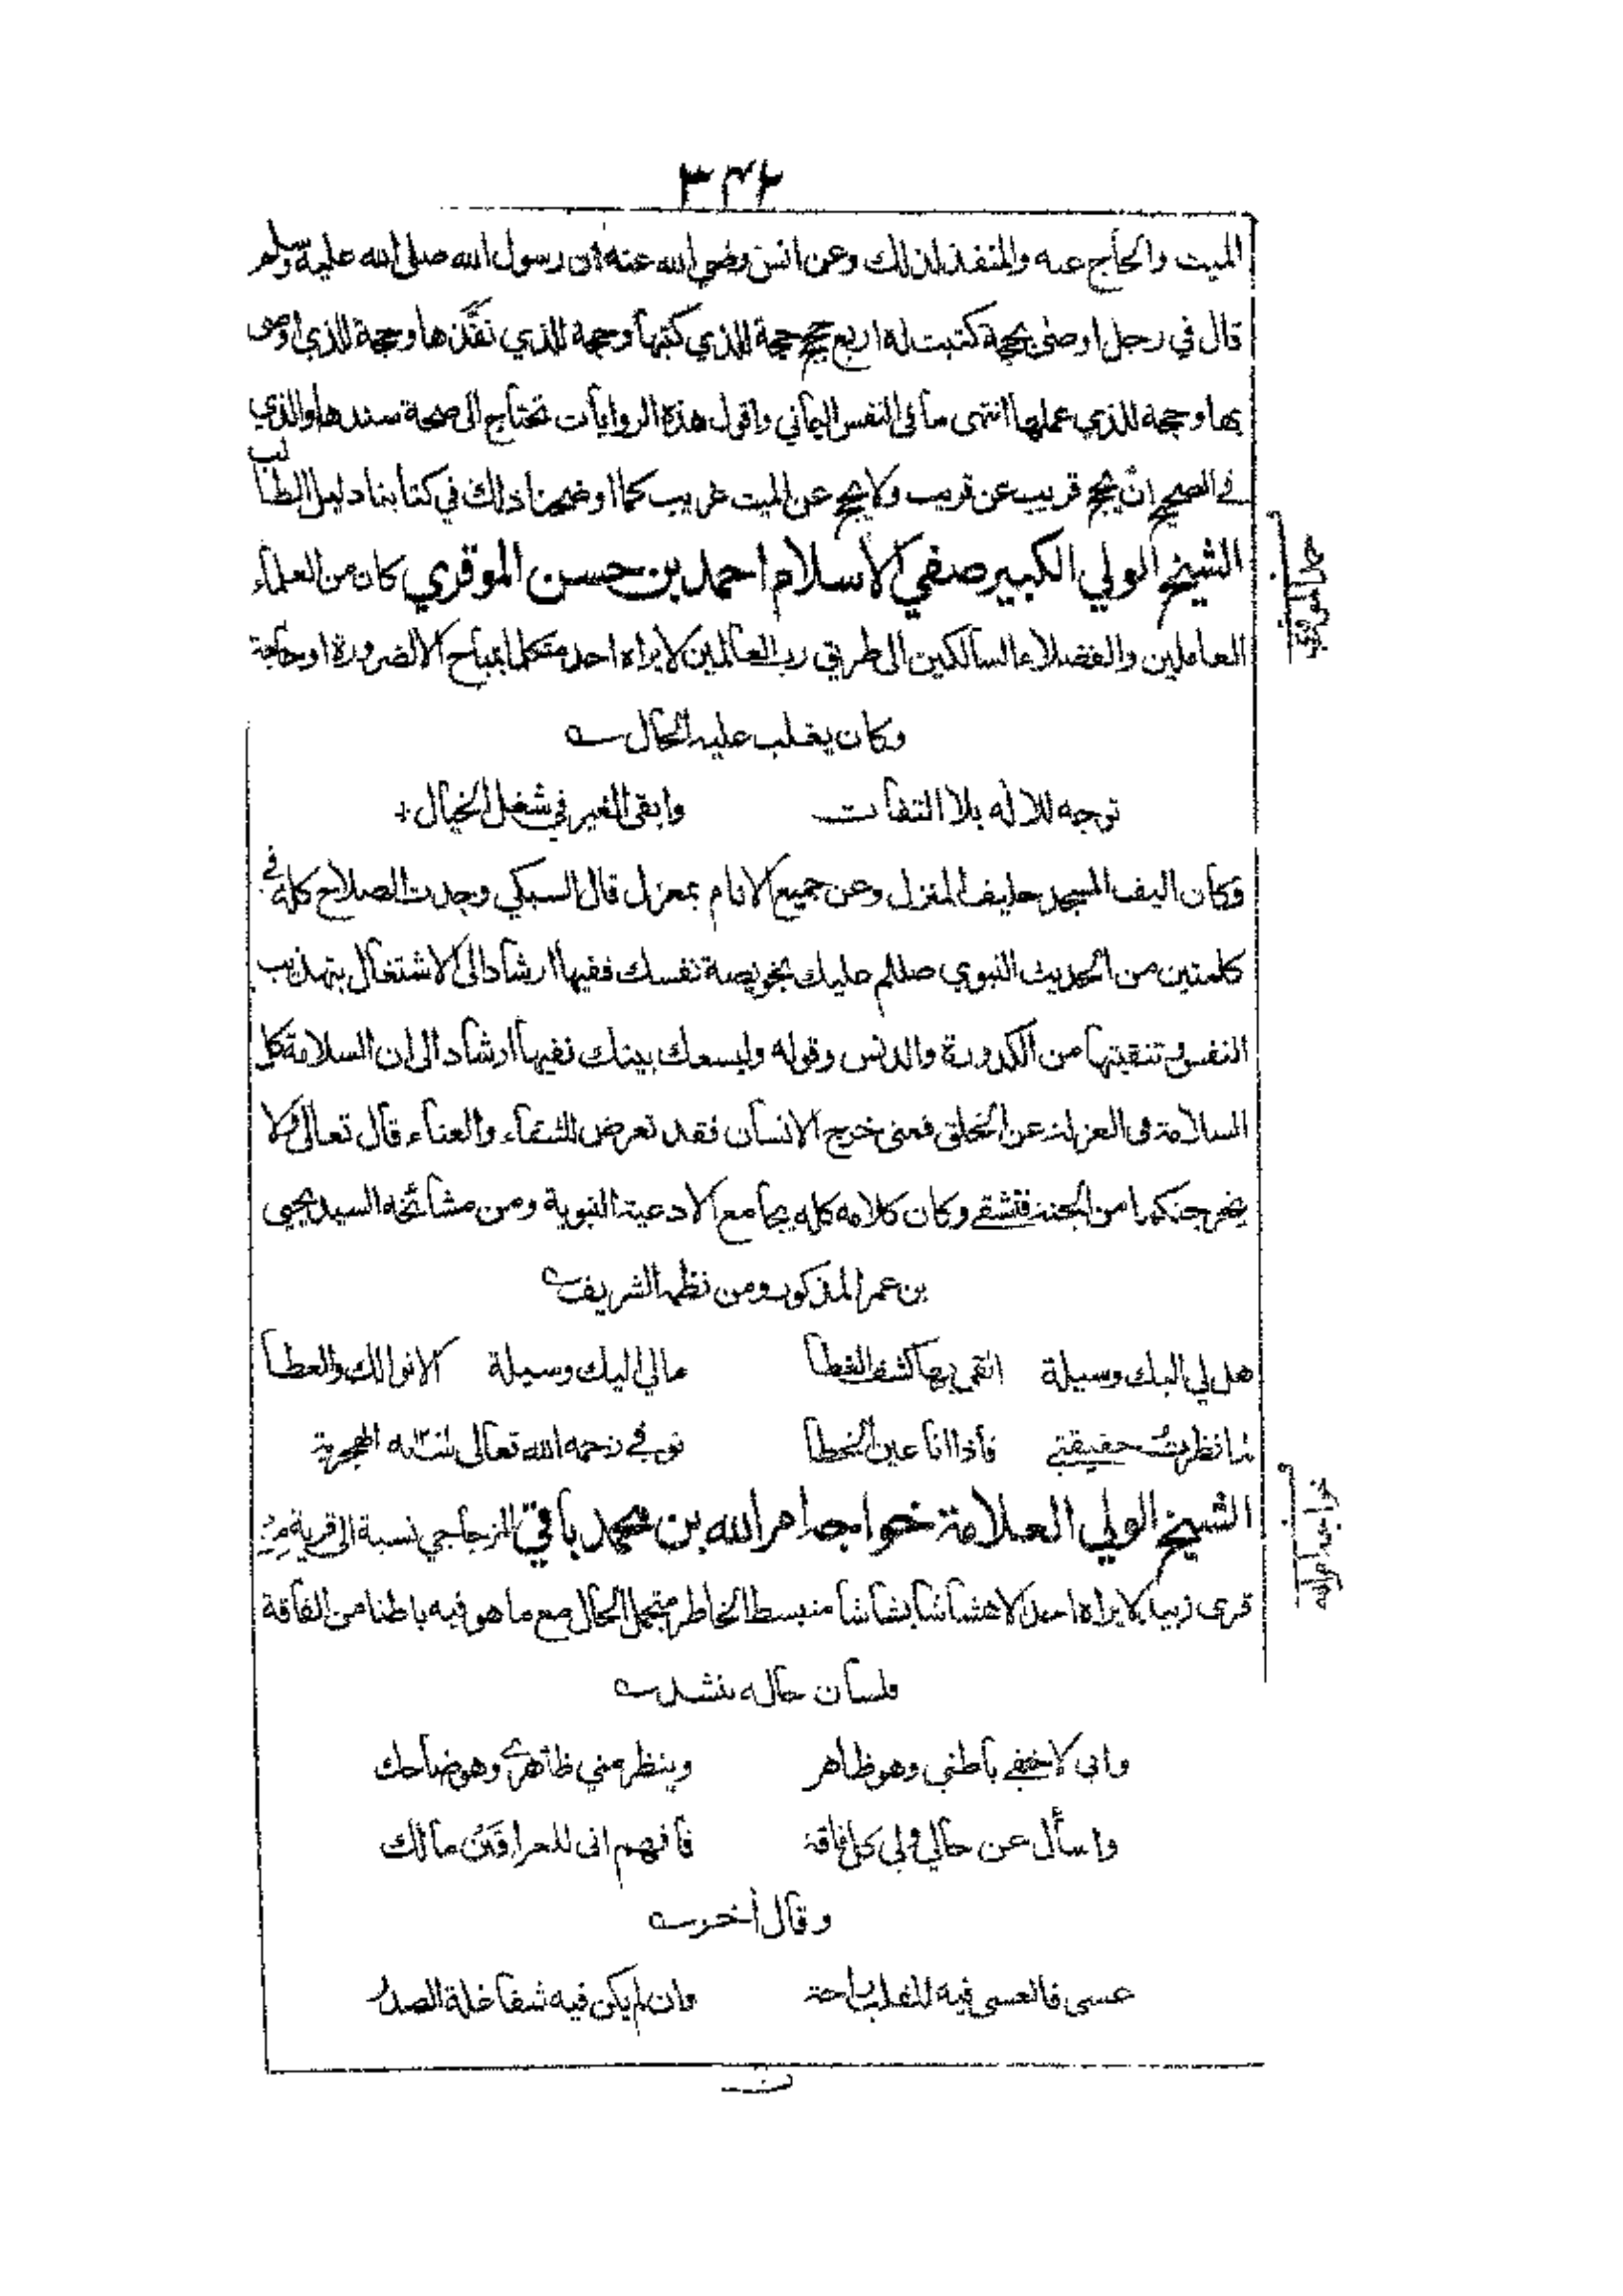 ٣٤٢
الميت والحاج عنه والمنفذ لذلك وعن انس رضي الله عنه ان رسول الله صلى الله عليه وسلم
قال في رجل اوصى بحجة كتبت له اربع حجج حجة للذي كتبها وحجة للذي نفّذها وحجة للذي اوصى
بها وحجة للذي عملها انتهى ما في النفس اليماني واقول هذه الروايات تحتاج الى صحة سندها والذي
في الصحيح انّ يحج قريب عن قريب ولا يحج عن الميت غريب كما اوضحنا ذلك في كتابنا دليل الطالب
الشيخ الولي الكبير صفي الاسلام احمد بن حسن الموقري كان من العلماء
العاملين والفضلاء السالكين الى طريق رب العالمين لا يراه احد متكلما بمباح الا لضرورة او حاجة
وكان يغلب عليه الحال
توجه للاله بلا التفات وابقى الغير في شغل الخيال
وكان اليف المسجد حليف المنزل وعن جميع الانام بمعزل قال السبكي وجدت الصلاح كله في
كلمتين من الحديث النبوي صللم عليك بخويصة نفسك ففيها ارشاد الى الاشتغال بتهذيب
النفس وتنقيتها من الكدورة والدنس وقوله وليسعك بيتك ففيها ارشاد الى ان السلامة كل
السلامة في العزلة عن الخلق فمتى خرج الانسان فقد تعرض للشقاء والعناء قال تعالى فلا
يخرجنكما من الجنة فتشقى وكان كلامه كله بجامع الادعية النبوية ومن مشائخه السيد يحيى
بن عمر المذكور ومن نظمه الشريف
هل لي اليك وسيلة القى بها كشف الغطا مالي اليك وسيلة الا نوالك والعطا
نظرت حقيقتي فاذا انا عين الخطا توفي رحمه الله تعالى الهجرية
الشيخ الولي العلامة خواجه امر الله بن محمد باقي المزجاجي نسبة الى قرية من
قرى زبيد لا يراه احد الا هشاشا بشاشا منبسط الخاطر متجمل الحال مع ما هو فيه باطنا من الفاقة
ولسان حاله ينشد
واني لاخفي باطني وهو ظاهر وينظر مني ظاهري وهو ضاحك
واسأل عن حالي ولي كل فاقة فافهم اني للعراقَين مالك
وقال آخر
عسى فالعسى فيه للقلب راحة وان لم يكن فيه شفا غلة الصدر